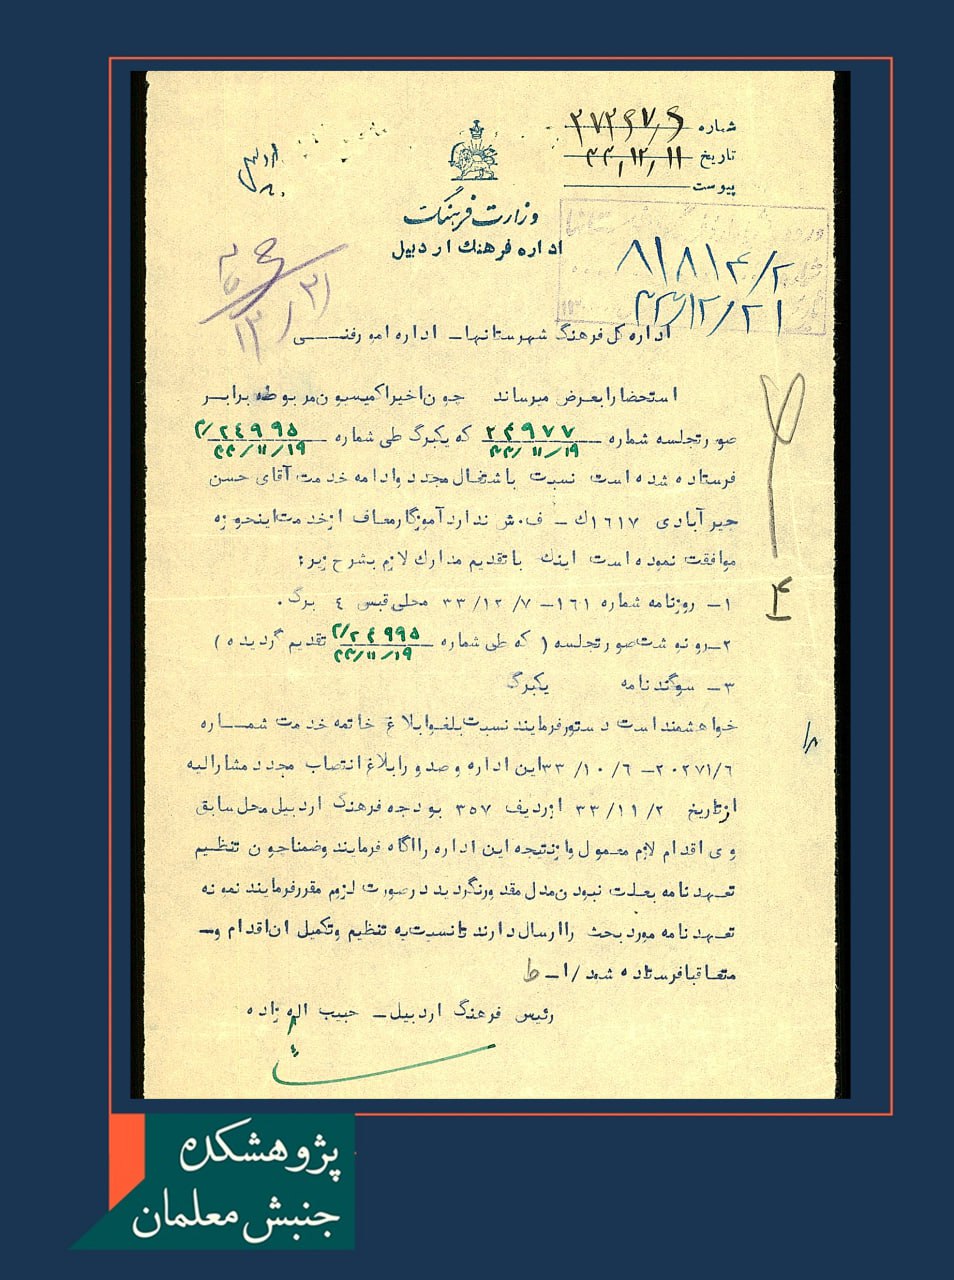 شماره ۲۷۲۶۷/۶
تاریخ ۳۳/۱۲/۱۱
پیوست
وزارت فرهنگ
اداره فرهنك اردبیل
۸۱۸۱۴/۲
۳۳/۱۲/۲۱
اداره کل فرهنگ شهرستانها ـ اداره امور فنی
استحضارا بعرض میرساند چون اخیرا کمیسیون مربوطه برابر
صورتجلسه شماره ۲۴۹۷۷ ۳۳/۱۱/۱۹ که یکبرگ طی شماره ۲/۲۴۹۹۵ ۳۳/۱۱/۱۹
فرستاده شده است نسبت باشتغال مجدد وادامه خدمت آقای حسن
جیرآبادی ۱٦۱۷ك ـ ف۰ش ندارد آموزگار معاف از خدمت اینحوزه
موافقت نموده است اینك با تقدیم مدارك لازم بشرح زیر:
۱ـ روزنامه شماره ۱٦۱ـ ۳۳/۱۲/۷ محلی قبس ٤ برگ .
۲ـ رونوشت صورتجلسه ( که طی شماره ۲/۲۴۹۹۵ ۳۳/۱۱/۱۹ تقدیم گردیده )
۳ـ سوگندنامه یکبرگ
خواهشمند است دستور فرمایند نسبت بلغو ابلاغ خاتمه خدمت شماره
۲۰۲۷۱/٦ـ ۳۳/۱۰/٦ این اداره و صدور ابلاغ انتصاب مجدد مشارالیه
از تاریخ ۳۳/۱۱/۲ از ردیف ۳۵۷ بودجه فرهنگ اردبیل محل سابق
وی اقدام لازم معمول و از نتیجه این اداره را آگاه فرمایند وضمنا چون تنظیم
تعهدنامه بعلت نبودن مدل مقدور نگردید درصورت لزوم مقرر فرمایند نمونه
تعهدنامه مورد بحث را ارسال دارند تا نسبت به تنظیم وتکمیل ان اقدام وـ
متعاقبا فرستاده شود /۱ـ ط
رئیس فرهنگ اردبیل ـ حبیب اله زاده
پژوهشکده
جنبش معلمان